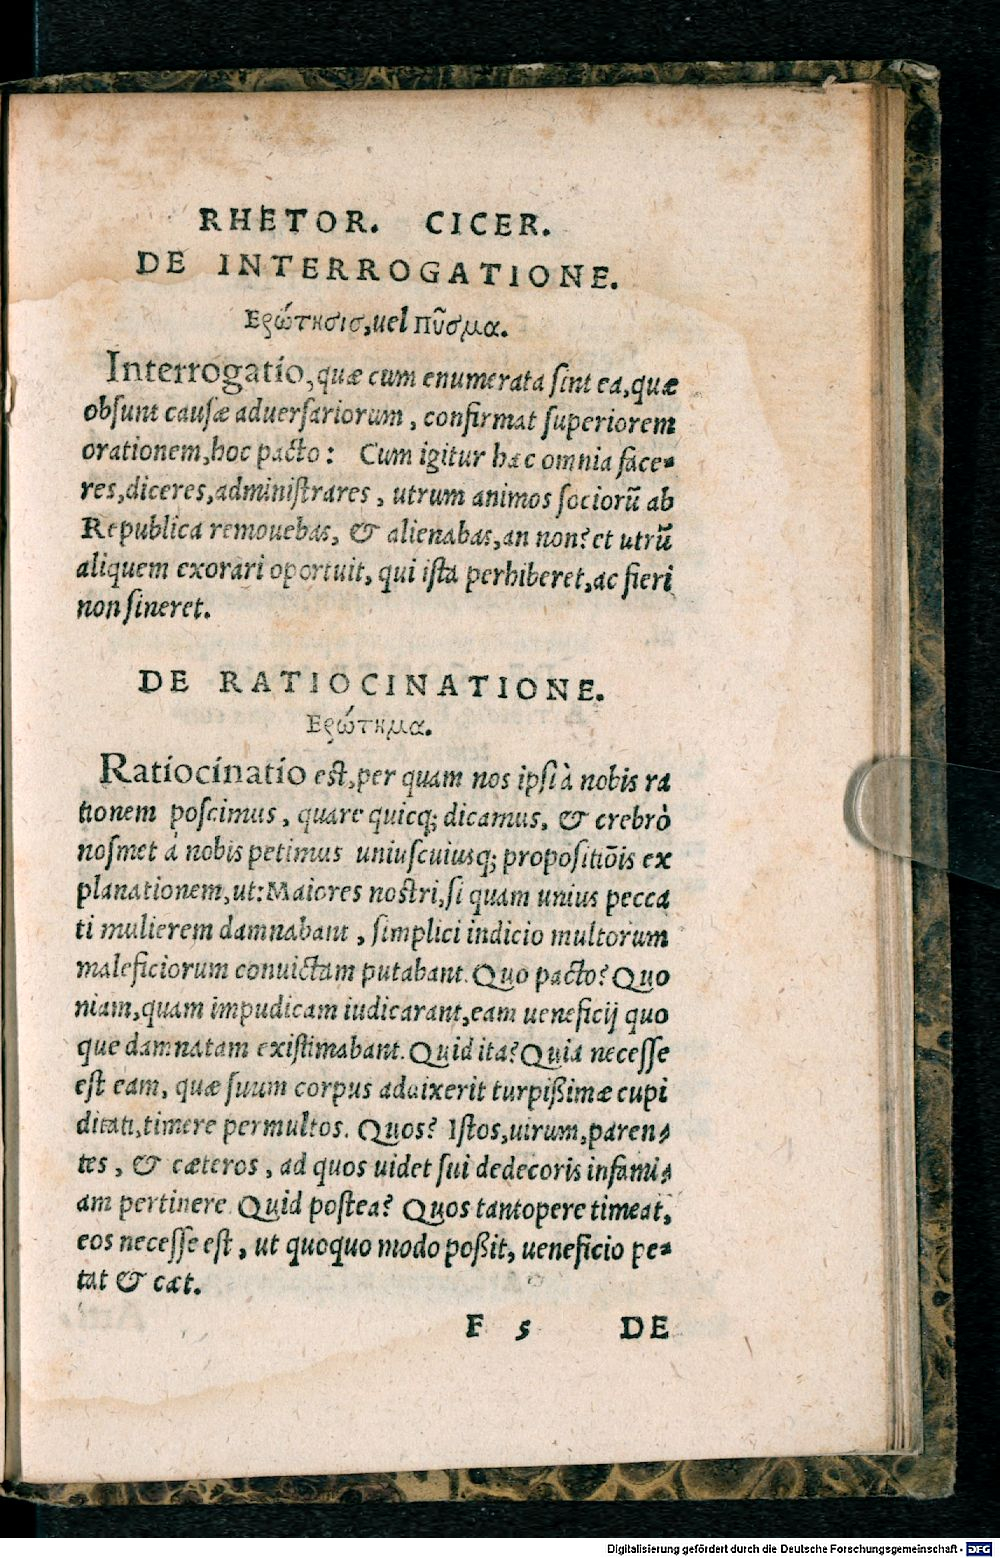 RHETOR. CICER.
DE INTERROGATIONE.
Ερώτησισ, uel πῦσμα.
Interrogatio, quæ cum enumerata ſint ea, quæ
obſunt cauſæ aduerſariorum, confirmat ſuperiorem
orationem, hoc pacto: Cum igitur hæc omnia face-
res, diceres, adminiſtrares, utrum animos ſociorū ab
Republica remouebas, & alienabas, an non? et utrū
aliquem exorari oportuit, qui iſta perhiberet, ac fieri
non ſineret.
DE RATIOCINATIONE.
Ερώτημα.
Ratiocinatio eſt, per quam nos ipſi à nobis ra
tionem poſcimus, quare quicq; dicamus, & crebrò
noſmet à nobis petimus uniuſcuiusq; propoſitiōis ex
planationem, ut: Maiores noſtri, ſi quam unius pecca
ti mulierem damnabant, ſimplici indicio multorum
maleficiorum conuictam putabant. Quo pacto? Quo
niam, quam impudicam iudicarant, eam ueneficij quo
que damnatam exiſtimabant. Quid ita? Quia neceſſe
eſt eam, quæ ſuum corpus addixerit turpißimæ cupi
ditati, timere permultos. Quos? Iſtos, uirum, paren-
tes, & cæteros, ad quos uidet ſui dedecoris infami-
am pertinere Quid poſtea? Quos tantopere timeat,
eos neceſſe eſt, ut quoquo modo poßit, ueneficio pe-
tat & cæt.
F 5 DE
Digitalisierung gefördert durch die Deutsche Forschungsgemeinschaft - DFG